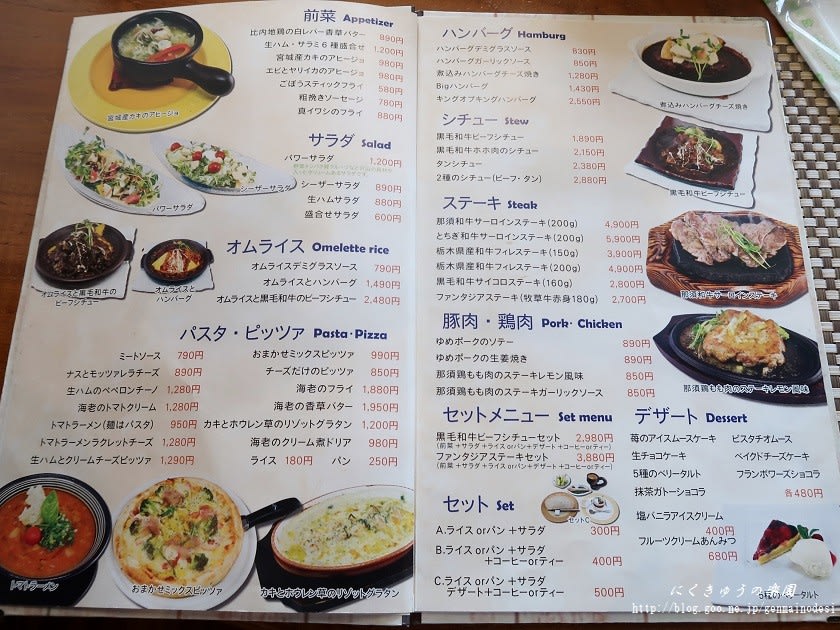 前菜 Appetizer
比内地鶏の白レバー香草バター 890円
生ハム・サラミ6種盛合せ 1,200円
宮城産カキのアヒージョ 980円
エビとヤリイカのアヒージョ 980円
ごぼうスティックフライ 580円
粗挽きソーセージ 780円
真イワシのフライ 880円
宮城産カキのアヒージョ
サラダ Salad
パワーサラダ 1,200円
シーザーサラダ 890円
生ハムサラダ 880円
盛合せサラダ 600円
パワーサラダ
シーザーサラダ
オムライス Omelette rice
オムライスデミグラスソース 790円
オムライスとハンバーグ 1,490円
オムライスと黒毛和牛のビーフシチュー 2,480円
オムライスと黒毛和牛の
ビーフシチュー
オムライスと
ハンバーグ
パスタ・ピッツァ Pasta・Pizza
ミートソース 790円
ナスとモッツァレラチーズ 890円
生ハムのペペロンチーノ 1,280円
海老のトマトクリーム 1,280円
トマトラーメン(麺はパスタ) 950円
トマトラーメンラクレットチーズ 1,280円
生ハムとクリームチーズピッツァ 1,290円
おまかせミックスピッツァ 990円
チーズだけのピッツァ 850円
海老のフライ 1,880円
海老の香草バター 1,950円
カキとホウレン草のリゾットグラタン 1,200円
海老のクリーム煮ドリア 980円
ライス 180円 パン 250円
トマトラーメン
おまかせミックスピッツァ
カキとホウレン草のリゾットグラタン
ハンバーグ Hamburg
ハンバーグデミグラスソース 830円
ハンバーグガーリックソース 850円
煮込みハンバーグチーズ焼き 1,280円
Bigハンバーグ 1,430円
キングオブキングハンバーグ 2,550円
煮込みハンバーグチーズ焼き
シチュー Stew
黒毛和牛ビーフシチュー 1,890円
黒毛和牛ホホ肉のシチュー 2,150円
タンシチュー 2,380円
2種のシチュー(ビーフ・タン) 2,880円
黒毛和牛ビーフシチュー
ステーキ Steak
那須和牛サーロインステーキ(200g) 4,900円
とちぎ和牛サーロインステーキ(200g) 5,900円
栃木県産和牛フィレステーキ(150g) 3,900円
栃木県産和牛フィレステーキ(200g) 4,900円
黒毛和牛サイコロステーキ(160g) 2,800円
ファンタジアステーキ(牧草牛赤身180g) 2,700円
那須和牛サーロインステーキ
豚肉・鶏肉 Pork・Chicken
ゆめポークのソテー 890円
ゆめポークの生姜焼き 890円
那須鶏もも肉のステーキレモン風味 850円
那須鶏もも肉のステーキガーリックソース 850円
那須鶏もも肉のステーキレモン風味
セットメニュー Set menu
黒毛和牛ビーフシチューセット 2,980円
(前菜+サラダ+ライスorパン+デザート+コーヒーorティー)
ファンタジアステーキセット 3,880円
(前菜+サラダ+ライスorパン+デザート+コーヒーorティー)
セット Set
セットC
A.ライスorパン+サラダ 300円
B.ライスorパン+サラダ
+コーヒーorティー 400円
C.ライスorパン+サラダ
デザート+コーヒーorティー 500円
デザート Dessert
苺のアイスムースケーキ ピスタチオムース
生チョコケーキ ベイクドチーズケーキ
5種のベリータルト フランボワーズショコラ
抹茶ガトーショコラ 各480円
塩バニラアイスクリーム
400円
フルーツクリームあんみつ
680円
5種のベリータルト
にくきゅうの楽園
http://blog.goo.ne.jp/genmainodesi